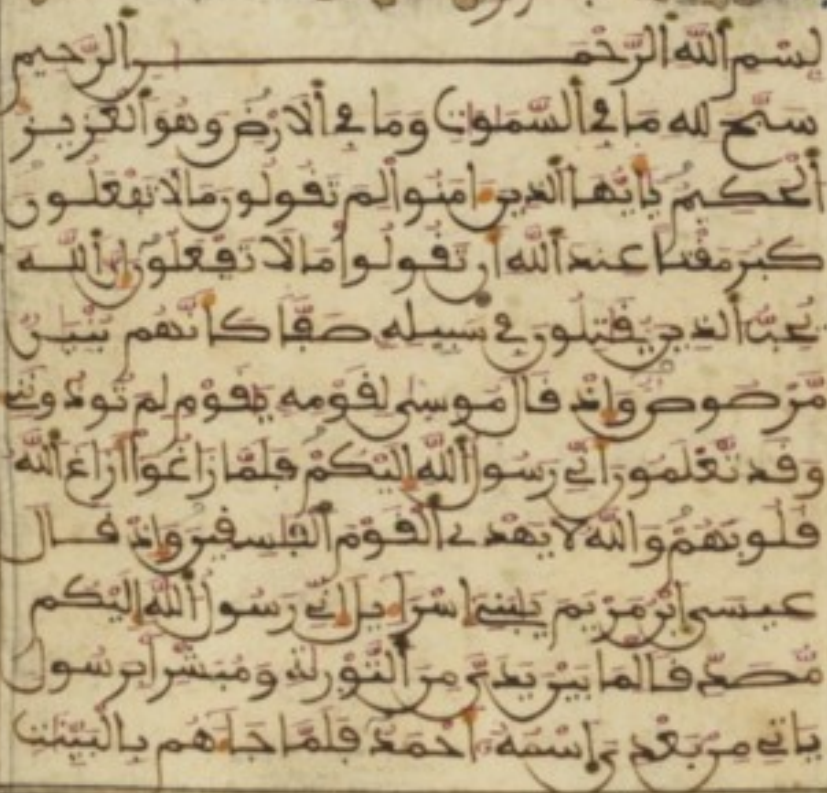 بسم الله الرحمن الرحيم
سبح لله ما في السموت وما في الارض وهو العزيز
الحكيم يأيها الذين ءامنوا لم تقولون ما لا تفعلون
كبر مقتا عند الله ان تقولوا ما لا تفعلون ان الله
يحب الذين يقتلون في سبيله صفا كأنهم بنين
مرصوص واذ قال موسى لقومه يقوم لم توذونني
وقد تعلمون أني رسول الله إليكم فلما زاغوا أزاغ الله
قلوبهم والله لا يهدي القوم الفسقين وإذ قال
عيسى ابن مريم يبني إسراءيل إني رسول الله إليكم
مصدقا لما بين يدي من التورية ومبشرا برسول
ياتي من بعدي اسمه أحمد فلما جاءهم بالبينت